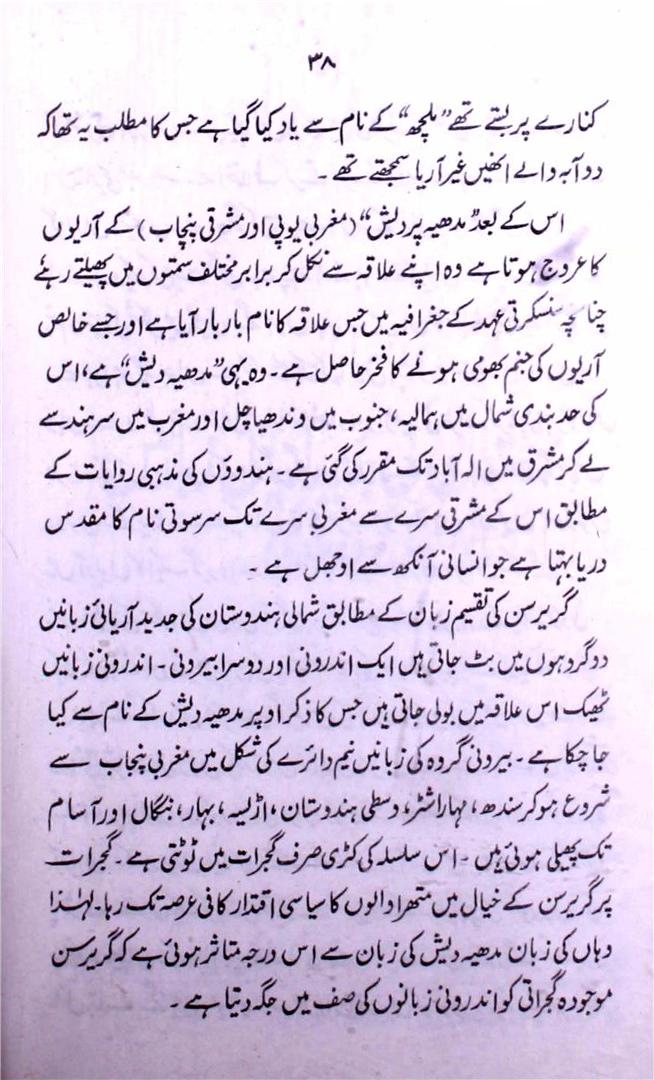 ۳۸
کنارے پر بستے تھے ”ملچھ“ کے نام سے یاد کیا گیا ہے جس کا مطلب یہ تھا کہ
دوآبہ والے انھیں غیر آریا سمجھتے تھے ۔
اس کے بعد ”مدھیہ پردیش“ (مغربی یوپی اور مشرقی پنجاب) کے آریوں
کا عروج ہوتا ہے وہ اپنے علاقہ سے نکل کر برابر مختلف سمتوں میں پھیلتے رہے
چنانچہ سنسکرتی عہد کے جغرافیہ میں جس علاقہ کا نام بار بار آیا ہے اور جسے خالص
آریوں کی جنم بھومی ہونے کا فخر حاصل ہے ۔ وہ یہی ”مدھیہ دیش“ ہے، اس
کی حد بندی شمال میں ہمالیہ، جنوب میں وندھیاچل اور مغرب میں سرہند سے
لے کر مشرق میں الہ آباد تک مقرر کی گئی ہے ۔ ہندوؤں کی مذہبی روایات کے
مطابق اس کے مشرقی سرے سے مغربی سرے تک سرسوتی نام کا مقدس
دریا بہتا ہے جو انسانی آنکھ سے اوجھل ہے ۔
گریرسن کی تقسیم زبان کے مطابق شمالی ہندوستان کی جدید آریائی زبانیں
دو گروہوں میں بٹ جاتی ہیں ایک اندرونی اور دوسرا بیرونی ۔ اندرونی زبانیں
ٹھیک اس علاقہ میں بولی جاتی ہیں جس کا ذکر اوپر مدھیہ دیش کے نام سے کیا
جا چکا ہے ۔ بیرونی گروہ کی زبانیں نیم دائرے کی شکل میں مغربی پنجاب سے
شروع ہو کر سندھ، مہاراشٹر، وسطی ہندوستان، اڑیسہ، بہار، بنگال اور آسام
تک پھیلی ہوئی ہیں ۔ اس سلسلہ کی کڑی صرف گجرات میں ٹوٹتی ہے ۔ گجرات
پر گریرسن کے خیال میں متھرا والوں کا سیاسی اقتدار کافی عرصہ تک رہا ۔ لہٰذا
وہاں کی زبان مدھیہ دیش کی زبان سے اس درجہ متاثر ہوئی ہے کہ گریرسن
موجودہ گجراتی کو اندرونی زبانوں کی صف میں جگہ دیتا ہے ۔